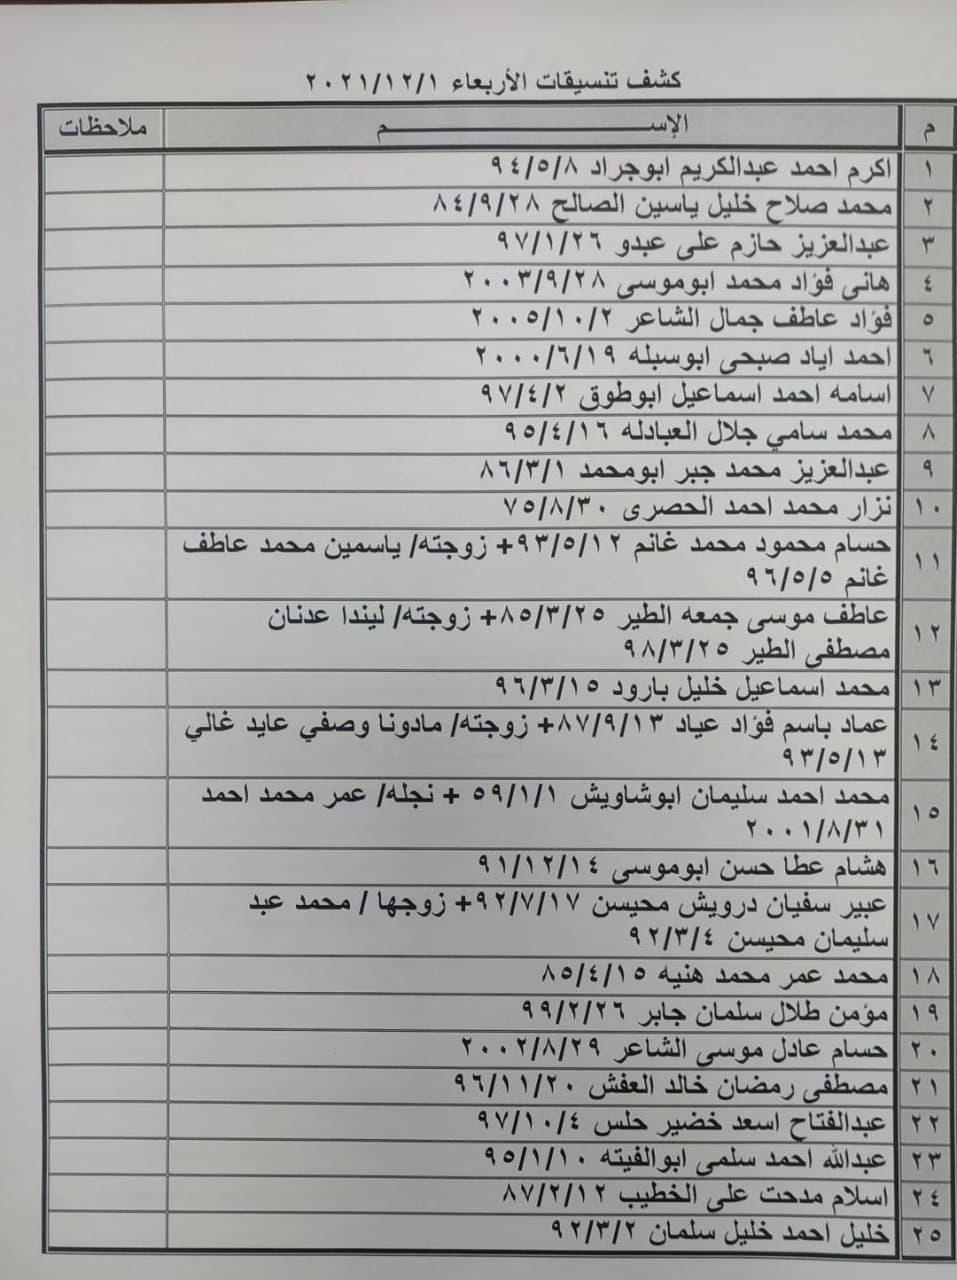 كشف تنسيقات الأربعاء ٢٠٢١/١٢/١
م الإســـــــــم ملاحظات
١ اكرم احمد عبدالكريم ابوجراد ٩٤/٥/٨
٢ محمد صلاح خليل ياسين الصالح ٨٤/٩/٢٨
٣ عبدالعزيز حازم على عبدو ٩٧/١/٢٦
٤ هانى فؤاد محمد ابوموسى ٢٠٠٣/٩/٢٨
٥ فؤاد عاطف جمال الشاعر ٢٠٠٥/١٠/٢
٦ احمد اياد صبحى ابوسبله ٢٠٠٠/٦/١٩
٧ اسامه احمد اسماعيل ابوطوق ٩٧/٤/٢
٨ محمد سامي جلال العبادله ٩٥/٤/١٦
٩ عبدالعزيز محمد جبر ابومحمد ٨٦/٣/١
١٠ نزار محمد احمد الحصرى ٧٥/٨/٣٠
١١ حسام محمود محمد غانم ٩٣/٥/١٢+ زوجته/ ياسمين محمد عاطف
غانم ٩٦/٥/٥
١٢ عاطف موسى جمعه الطير ٨٥/٣/٢٥+ زوجته/ ليندا عدنان
مصطفى الطير ٩٨/٣/٢٥
١٣ محمد اسماعيل خليل بارود ٩٦/٣/١٥
١٤ عماد باسم فؤاد عياد ٨٧/٩/١٣+ زوجته/ مادونا وصفي عايد غالي
٩٣/٥/١٣
١٥ محمد احمد سليمان ابوشاويش ٥٩/١/١ + نجله/ عمر محمد احمد
٢٠٠١/٨/٣١
١٦ هشام عطا حسن ابوموسى ٩١/١٢/١٤
١٧ عبير سفيان درويش محيسن ٩٢/٧/١٧+ زوجها / محمد عبد
سليمان محيسن ٩٢/٣/٤
١٨ محمد عمر محمد هنيه ٨٥/٤/١٥
١٩ مؤمن طلال سلمان جابر ٩٩/٢/٢٦
٢٠ حسام عادل موسى الشاعر ٢٠٠٢/٨/٢٩
٢١ مصطفى رمضان خالد العفش ٩٦/١١/٢٠
٢٢ عبدالفتاح اسعد خضير حلس ٩٧/١٠/٤
٢٣ عبدالله احمد سلمى ابوالفيته ٩٥/١/١٠
٢٤ اسلام مدحت على الخطيب ٨٧/٢/١٢
٢٥ خليل احمد خليل سلمان ٩٢/٣/٢